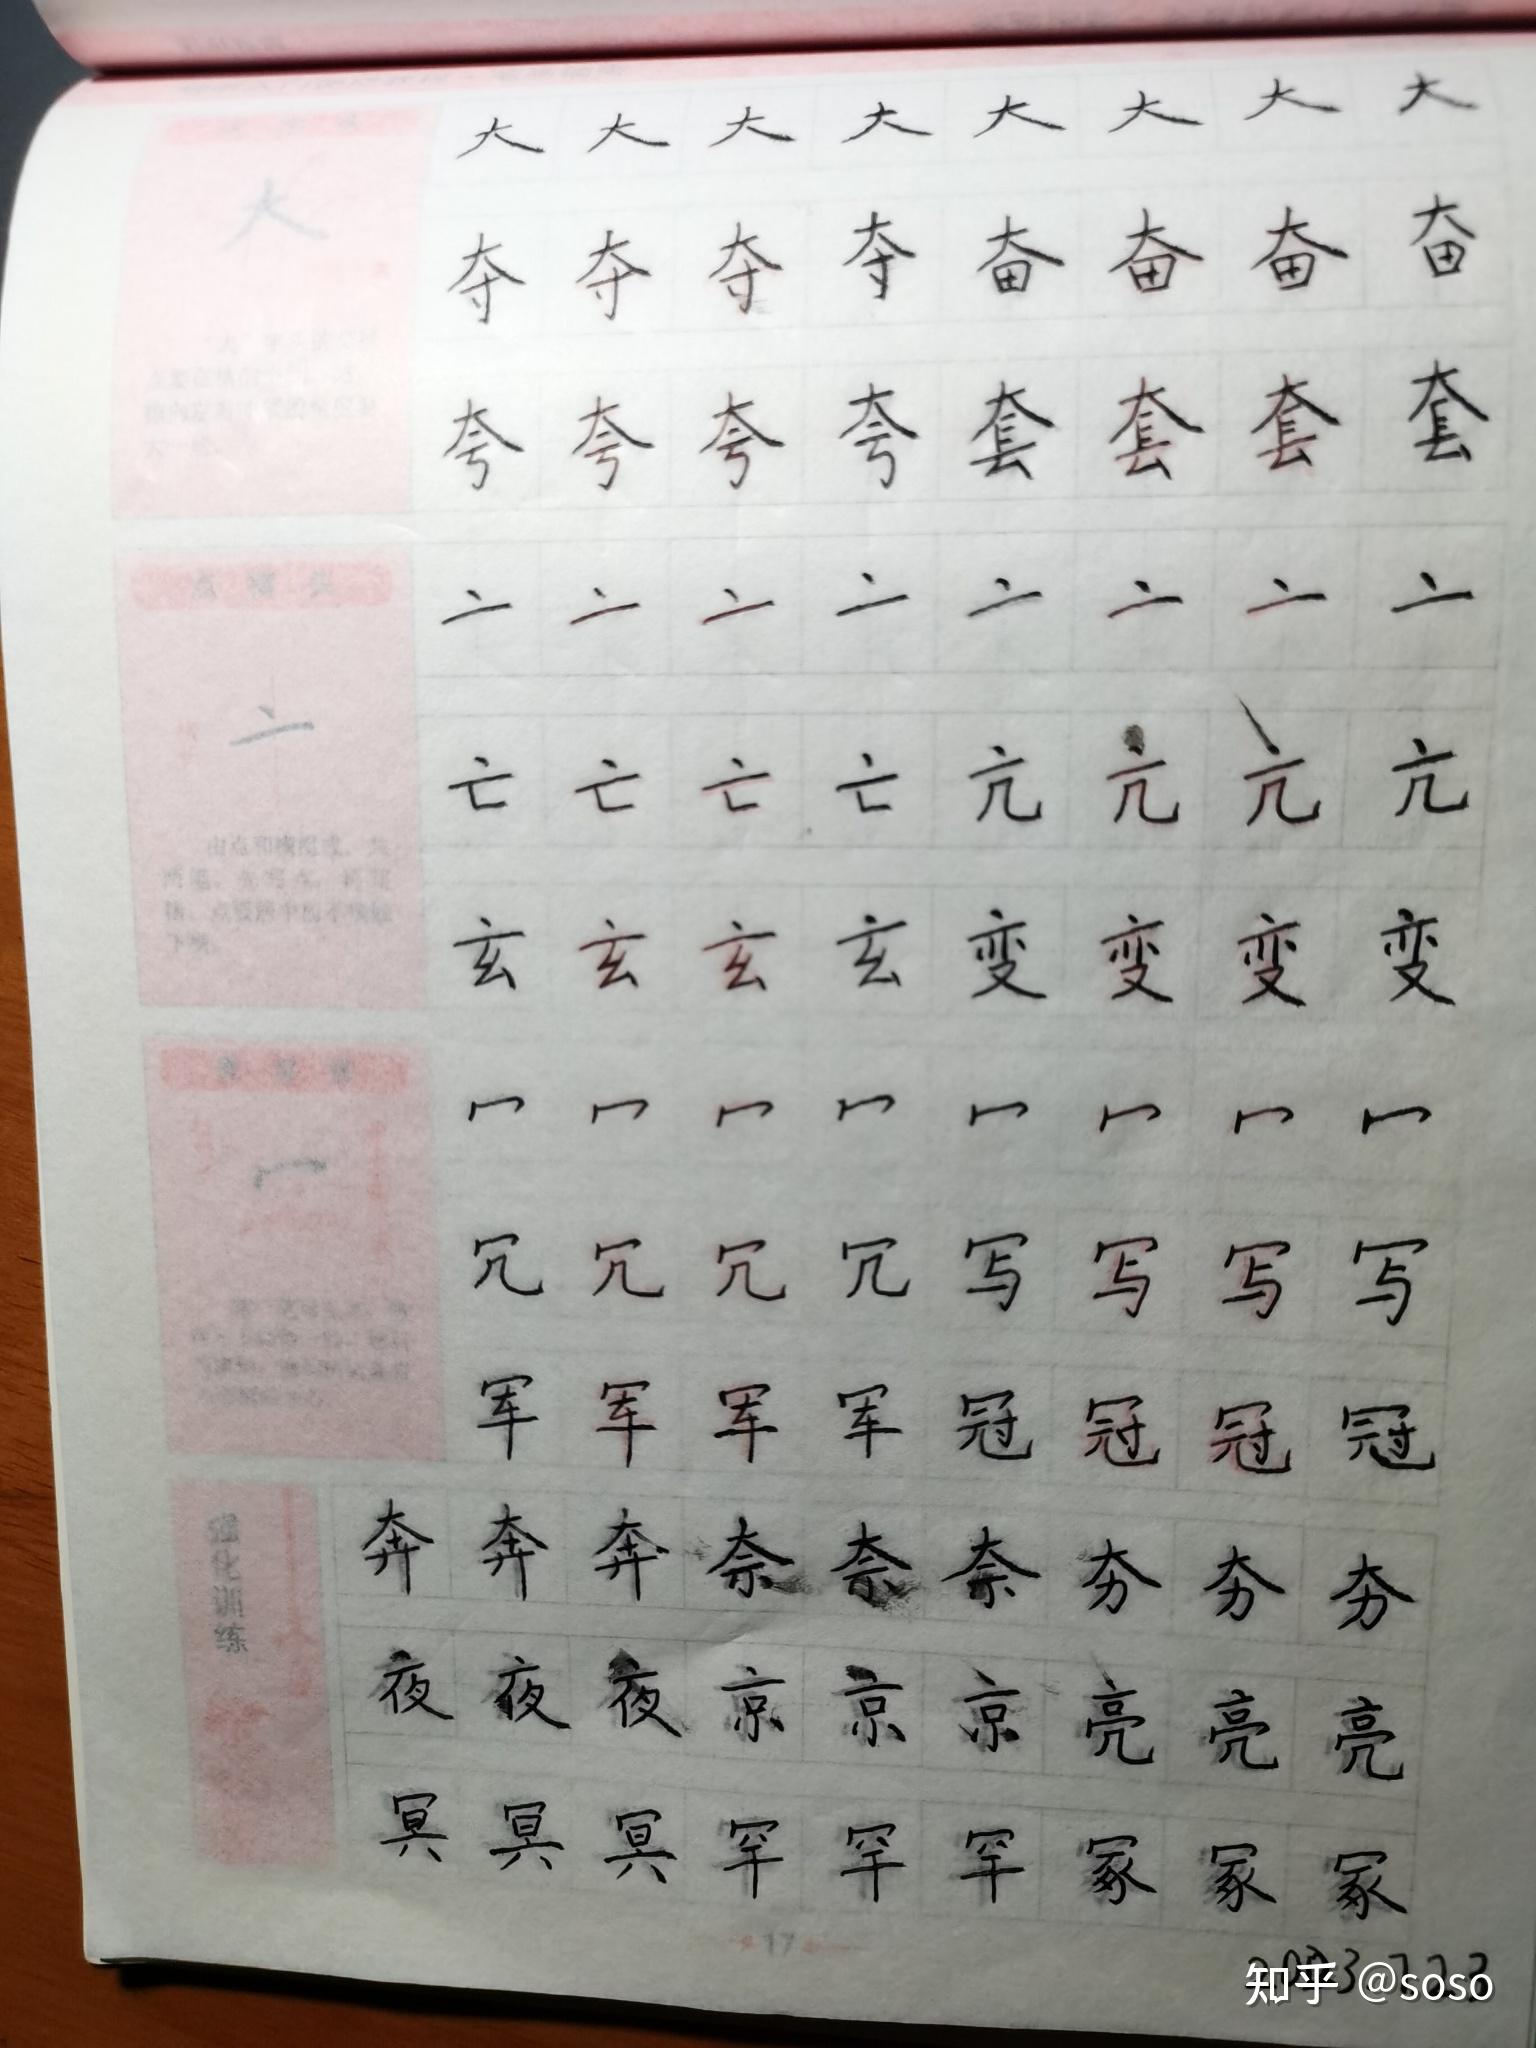 大 大 大 大 大 大 大 大
大
夺 夺 夺 夺 奋 奋 奋 奋
夸 夸 夸 夸 套 套 套 套
点 横 头
亠 亠 亠 亠 亠 亠 亠 亠
亠
亡 亡 亡 亡 亢 亢 亢 亢
玄 玄 玄 玄 变 变 变 变
冖 冖 冖 冖 冖 冖 冖 冖
冖
冗 冗 冗 冗 写 写 写 写
军 军 军 军 冠 冠 冠 冠
强化训练
奔 奔 奔 奈 奈 奈 夯 夯 夯
夜 夜 夜 京 京 京 亮 亮 亮
冥 冥 冥 罕 罕 罕 冢 冢 冢
17
知乎 @soso